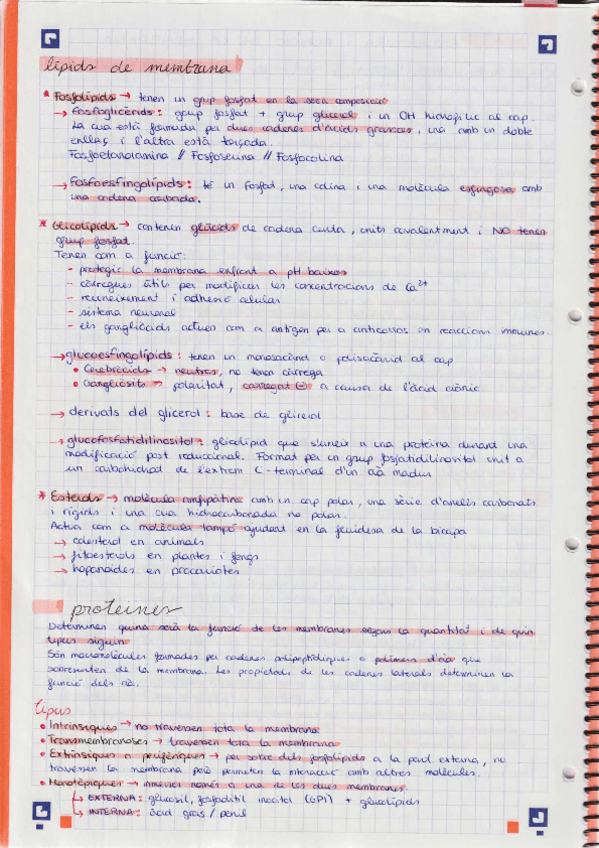 lípids de membrana
* Fosfolípids → tenen un grup fosfat en la seva composició
→ Fosfoglicèrids: grup fosfat + grup glicerol i un OH hidrofílic al cap.
La cua està formada per dues cadenes d'àcids grassos, una amb un doble
enllaç i l'altra està torçada.
Fosfoetanolamina // Fosfoserina // Fosfocolina
→ Fosfoesfingolípids: té un fosfat, una colina i una molècula esfingosa amb
una cadena acilada.
* Glicolípids → contenen glúcids de cadena curta, units covalentment i NO tenen
grup fosfat.
Tenen com a funció:
- protegir la membrana enfront a pH baixos
- càrregues útils per modificar les concentracions de Ca²⁺
- reconeixement i adhesió celular
- sistema neuronal
- els gangliòcids actuen com a antigen per a anticossos en reaccions immunes.
→ glucoesfingolípids: tenen un monosacàrid o polisacàrid al cap
• Cerebròcids → neutres, no tenen càrrega
• Gangliòsits → polaritat, carregat ⊖ a causa de l'àcid siànic
→ derivats del glicerol: base de glicerol
→ glucofosfatidilinositol: glicolípid que s'uneix a una proteïna durant una
modificació post traduccional. Format per un grup fosfatidilinositol unit a
un carbohidrat de l'extrem C-terminal d'un aà madur
* Esterols → molècula amfipàtica amb un cap polar, una sèrie d'anells carbonats
i rígids i una cua hidrocarbonada no polar.
Actua com a molècula tampó ajudant en la fluïdesa de la bicapa
→ colesterol en animals
→ fitoesterols en plantes i fongs
→ hopanoides en procariotes
proteïnes
Determinen quina serà la funció de les membranes segons la quantitat i de quin
tipus siguin
Són macromolècules formades per cadenes polipeptídiques o polímers d'aà que
sobresurten de la membrana. Les propietats de les cadenes laterals determinen la
funció dels aà.
tipus
• Intrínsiques → no travessen tota la membrana
• Transmembranoses → travessen tota la membrana
• Extrínsiques o perifèriques → per sobre dels fosfolípids a la part externa, no
travessen la membrana però permeten la interacció amb altres molècules.
• Monotòpiques → immerses només a una de les dues membranes.
↳ EXTERNA: glucosil, fosfaditil inocitol (GPI) + glucolípids
↳ INTERNA: àcid gras / prenil